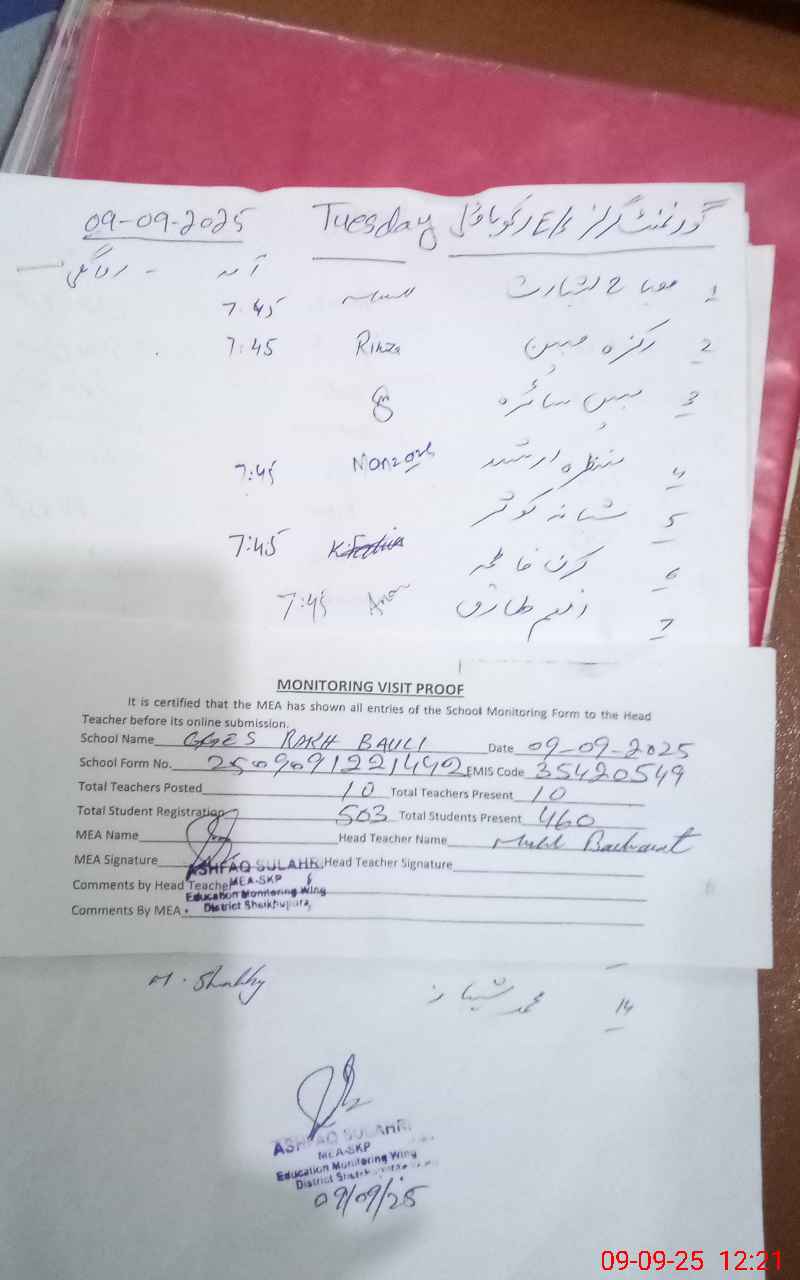 گورنمنٹ گرلز E/S رکھ باؤلی Tuesday 09-09-2025
آمد - روانگی
1 صباح بشارت 7:45
2 رکزہ مبین Rikza 7:45
3 مس سائرہ
4 منزہ ارشد Monzoza 7:45
5 شبانہ کوثر
6 کرن فاطمہ K.Fatima 7:45
7 انعم طارق Anam 7:45
MONITORING VISIT PROOF
It is certified that the MEA has shown all entries of the School Monitoring Form to the Head
Teacher before its online submission.
School Name GGES RAKH BAULI Date 09-09-2025
School Form No. 2509091221442 EMIS Code 35420549
Total Teachers Posted 10 Total Teachers Present 10
Total Student Registration 503 Total Students Present 460
MEA Name Head Teacher Name Basharat
MEA Signature Head Teacher Signature
ASHFAQ SULAHRI
MEA-SKP
Comments by Head Teacher
Education Monitoring Wing
District Sheikhupura
Comments By MEA
14 محمد شہباز
ASHFAQ SULAHRI
MEA-SKP
Education Monitoring Wing
District Sheikhupura
09/09/25
09-09-25 12:21